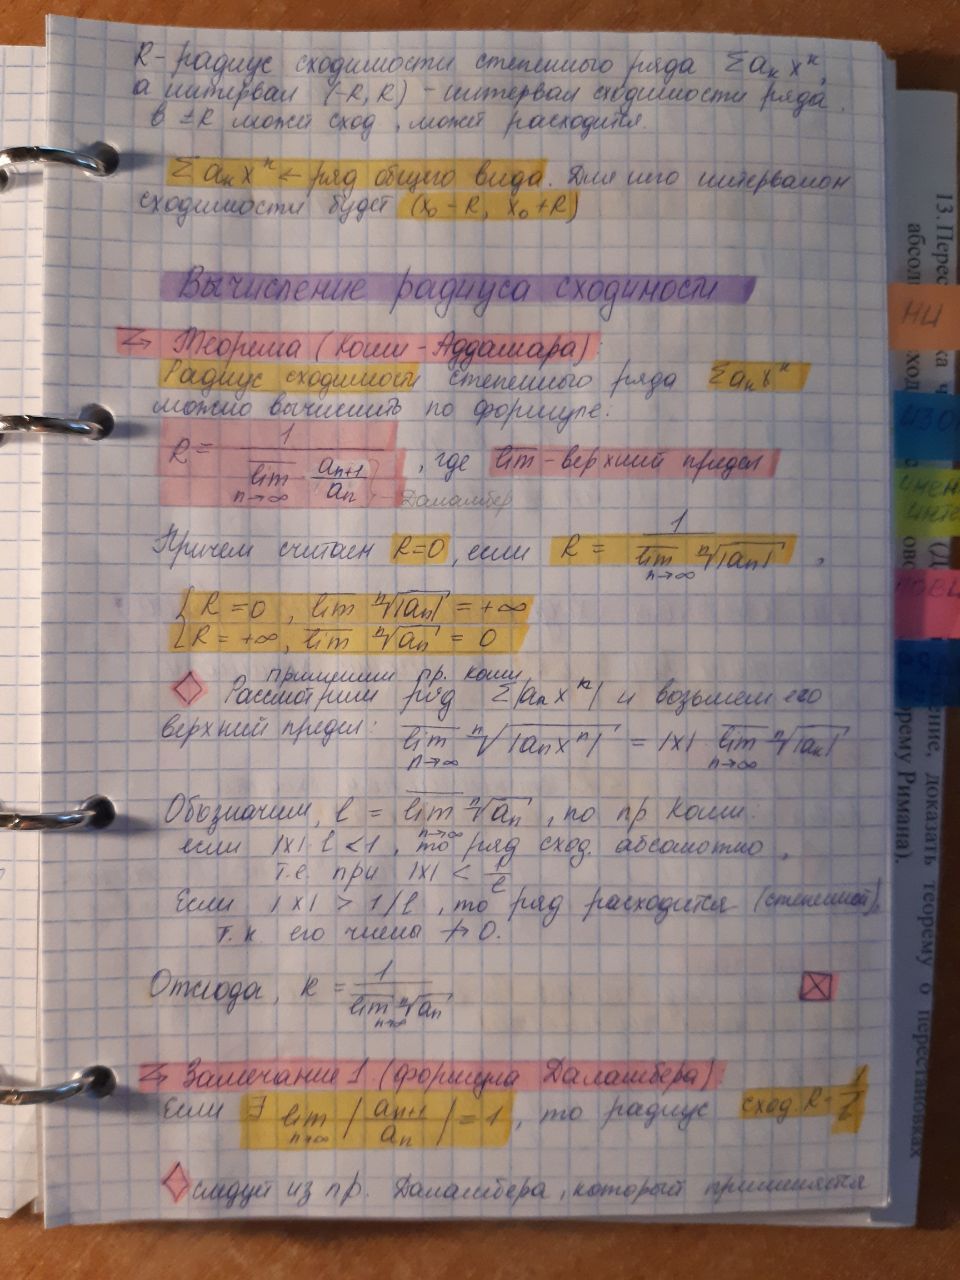 R - радиус сходимости степенного ряда Σaₙxⁿ,
а интервал (-R, R) - интервал сходимости ряда.
в ±R может сход, может расходится.
Σaₙxⁿ ← ряд общего вида. Для него интервалом
сходимости будет (x₀-R, x₀+R)
Вычисление радиуса сходимости
Теорема (Коши-Аддамара)
Радиус сходимости степенного ряда Σaₙxⁿ
можно вычислить по формуле:
R = 1 / lim̅ n→∞ aₙ₊₁/aₙ } - Даламбер, где lim̅ - верхний предел
Причем считаем R=0, если R = 1 / lim̅ n→∞ ⁿ√|aₙ|,
{ R = 0, lim̅ ⁿ√|aₙ| = +∞
{ R = +∞, lim̅ ⁿ√aₙ = 0
применим пр. Коши
Рассмотрим ряд Σ|aₙxⁿ| и возьмем его
верхний предел: lim̅ n→∞ ⁿ√|aₙxⁿ| = |x|·lim̅ n→∞ ⁿ√|aₙ|
Обозначим, l = lim̅ n→∞ ⁿ√aₙ, по пр Коши:
если |x|·l < 1, то ряд сход. абсолютно,
т.е. при |x| < 1/l
Если |x| > 1/l, то ряд расходится (степенной),
т.к его члены ↛ 0.
Отсюда, R = 1 / lim̅ n→∞ ⁿ√aₙ
Замечание 1 (формула Даламбера)
Если ∃ lim n→∞ |aₙ₊₁/aₙ| = 1, то радиус сход. R = 1/l
следует из пр. Даламбера, который применяется
13. Перес ка ч
абсол сход
(Д
ение, доказать теорему о перестановках
орему Римана).
НИ
ИЗО
имен
инте
НОВЫ